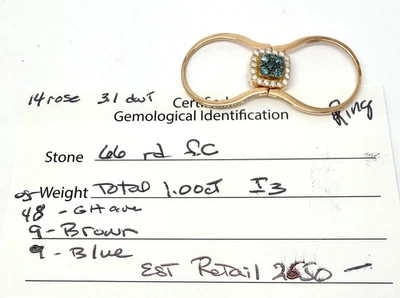 14 rose 3.1 dwt
Gemological Identification
Ring
Stone 66 rd f.c
Weight Total 1.00ct I3
48 -
9 - Brown
9 - Blue
EST Retail 2650 —